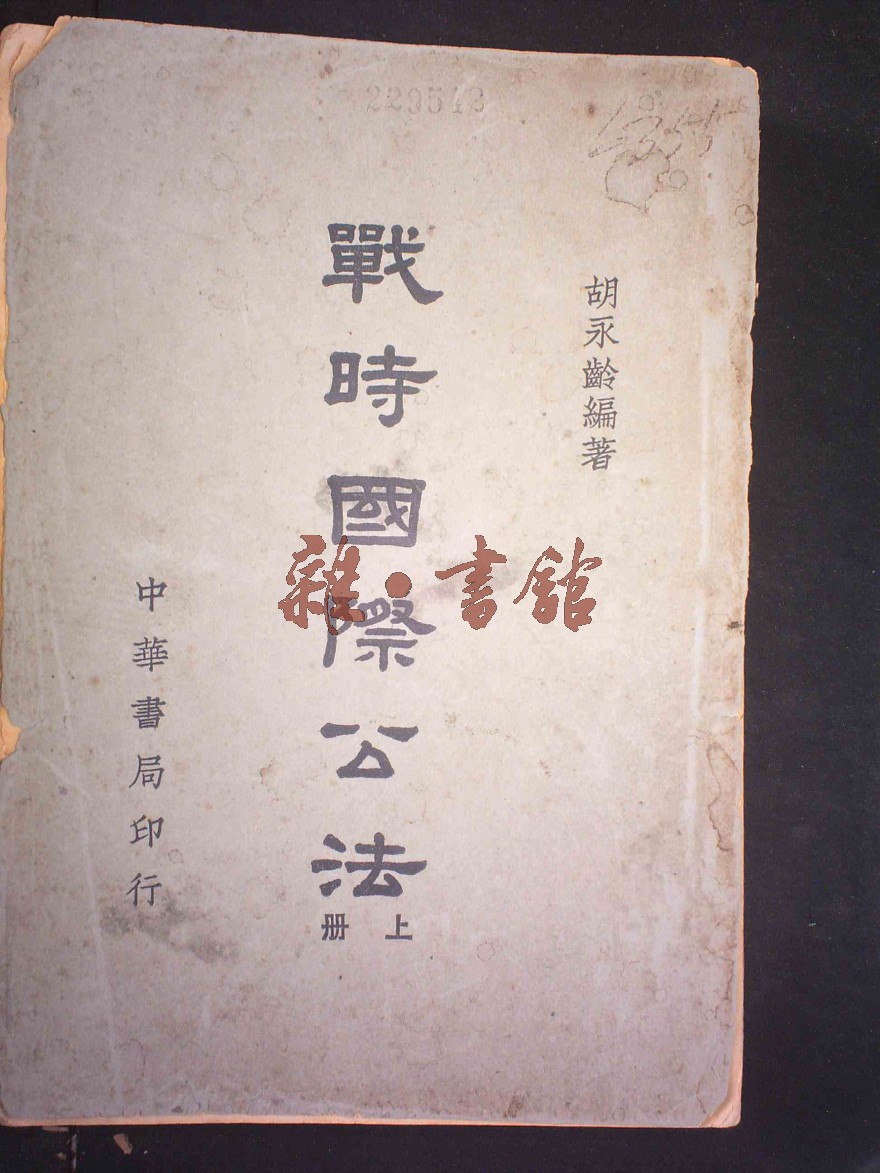 229542
胡永齡編著
戰時國際公法
上册
中華書局印行
雜·書館